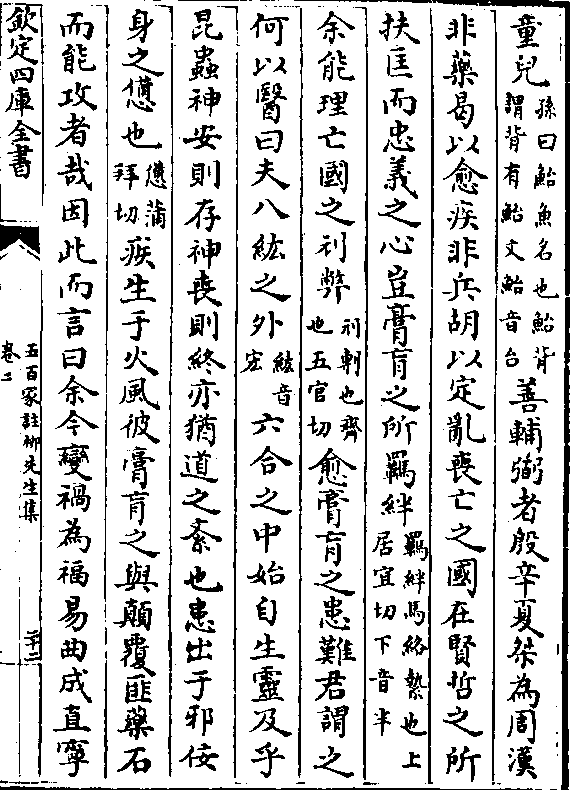 童兒孫曰鮐魚名也鮐背謂背有鮐文鮐音台善輔弼者殷辛夏桀為周漢
非藥曷以愈疾非兵胡以定亂喪亡之國在賢哲之所
扶匡而忠義之心豈膏肓之所羈絆羈絆馬絡縶也上居宜切下音半
余能理亡國之刓弊刓也齊也五官切愈膏肓之患難君謂之
何以醫曰夫八紘之外紘音宏六合之中始自生靈及乎
昆蟲神安則存神喪則終亦猶道之紊也患出于邪佞
身之憊也憊蒲拜切疾生于火風彼膏肓之與顛覆匪藥石
而能攻者哉因此而言曰余今變禍為福易曲成直寧
欽定四庫全書
五百家註柳先生集
卷二